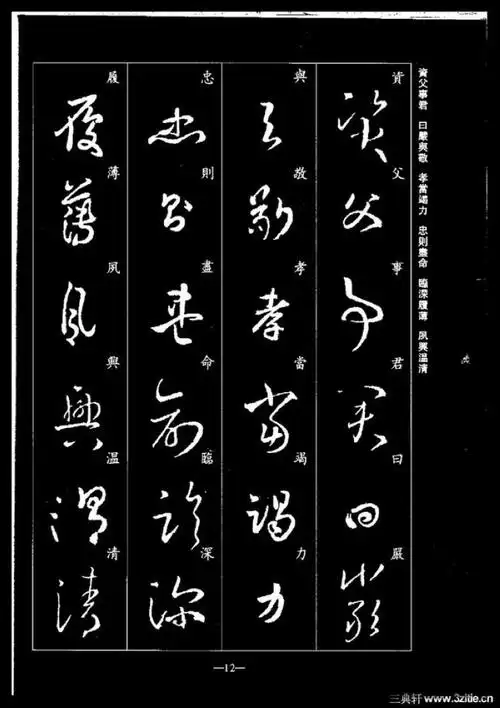 資父事君 曰嚴與敬 孝當竭力 忠則盡命 臨深履薄 夙興溫清
資父事君曰嚴
與敬孝當竭力
忠則盡命臨深
履薄夙興溫清
—12—
三典轩 www.3zitie.cn